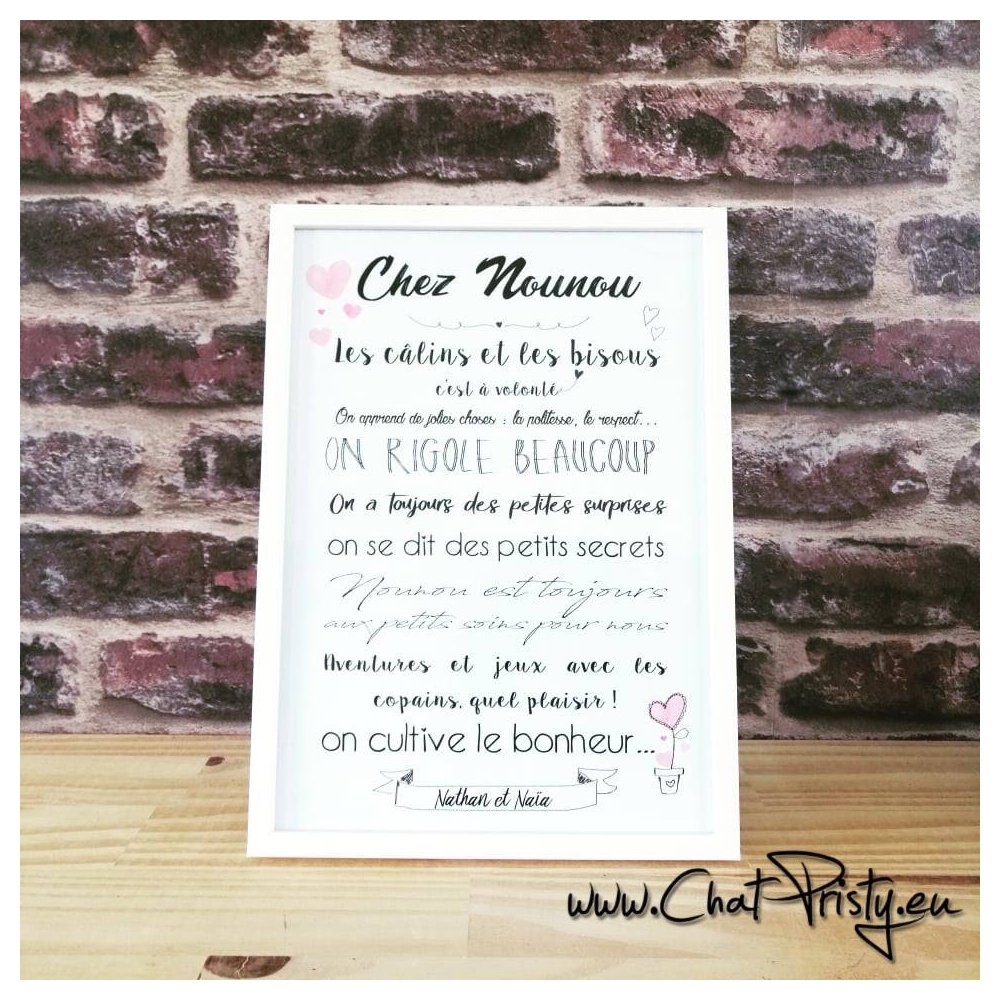 Chez Nounou
Les câlins et les bisous
c'est à volonté
On apprend de jolies choses : la politesse, le respect...
ON RIGOLE BEAUCOUP
On a toujours des petites surprises
on se dit des petits secrets
Nounou est toujours
aux petits soins pour nous
Aventures et jeux avec les
copains, quel plaisir !
on cultive le bonheur...
Nathan et Naïa
www.ChatPristy.eu